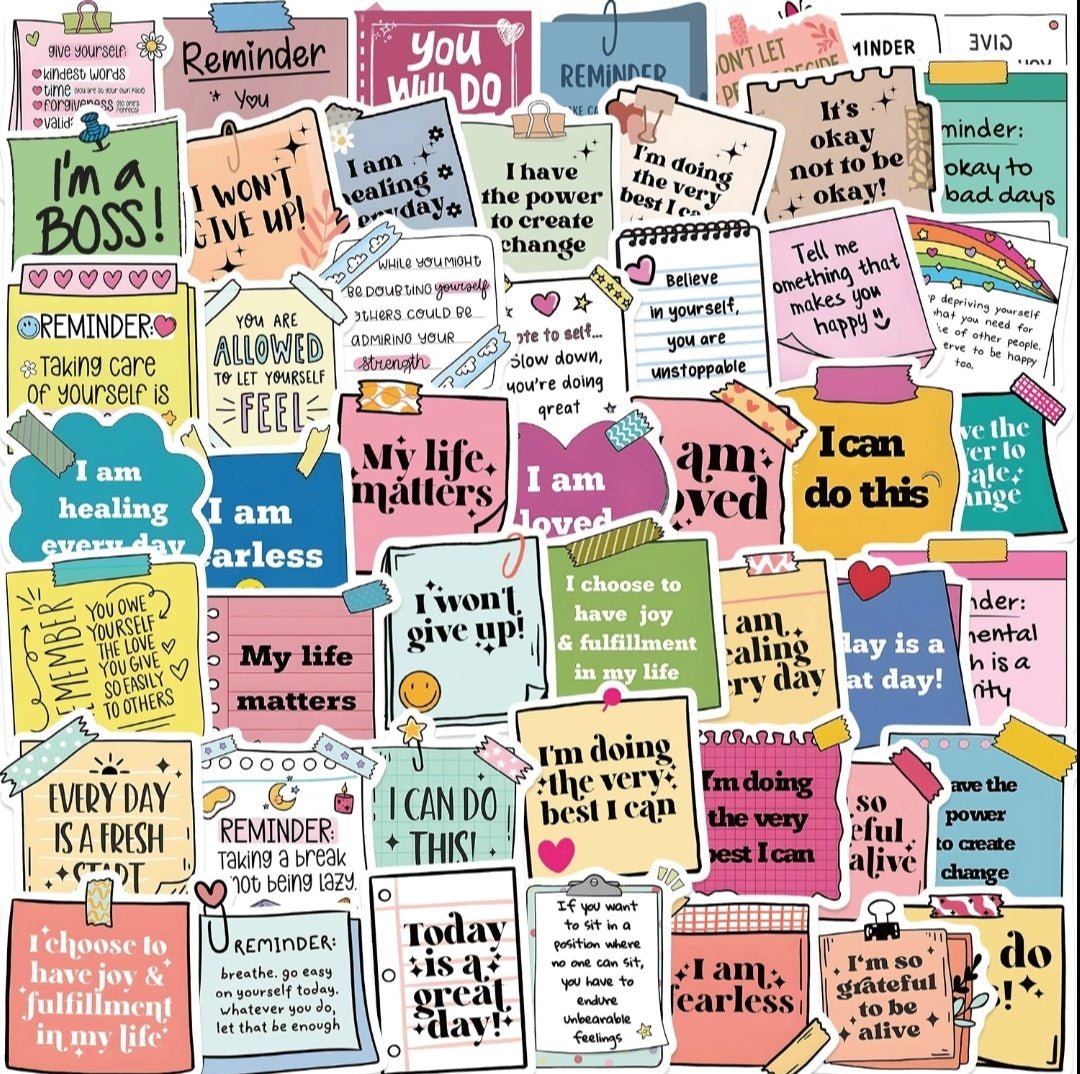 give yourself:
kindest words
time (you are at your own pace)
forgiveness (no one's perfect)
Reminder
You
YOU
WILL DO
REMINDER
ON'T LET
MINDER
GIVE
I'm a
BOSS!
I WON'T
GIVE UP!
I am
healing
everyday
I have
the power
to create
change
I'm doing
the very
best I ca
It's
okay
not to be
okay!
minder:
okay to
bad days
REMINDER:
Taking care
of yourself is
YOU ARE
ALLOWED
TO LET YOURSELF
FEEL
WHILE YOU MIGHT
BE DOUBTING yourself
OTHERS COULD BE
ADMIRING YOUR
strength
ote to self...
Slow down,
you're doing
great
Believe
in yourself,
you are
unstoppable
Tell me
omething that
makes you
happy
p depriving yourself
hat you need for
ke of other people.
erve to be happy
too.
I am
healing
every day
I am
earless
My life
matters
I am
loved
am
oved
I can
do this
ve the
er to
ate
ange
REMEMBER
YOU OWE
YOURSELF
THE LOVE
YOU GIVE
SO EASILY
TO OTHERS
My life
matters
I won't
give up!
I choose to
have joy
& fulfillment
in my life
I am
ealing
ery day
day is a
at day!
nder:
mental
h is a
rity
EVERY DAY
IS A FRESH
START
REMINDER:
Taking a break
not being lazy.
I CAN DO
THIS!
I'm doing
the very
best I can
I'm doing
the very
best I can
so
eful
alive
ave the
power
to create
change
I choose to
have joy &
fulfillment
in my life
REMINDER:
breathe. go easy
on yourself today.
whatever you do,
let that be enough
Today
is a
great
day!
If you want
to sit in a
position where
no one can sit,
you have to
endure
unbearable
feelings
I am
fearless
I'm so
grateful
to be
alive
do
!